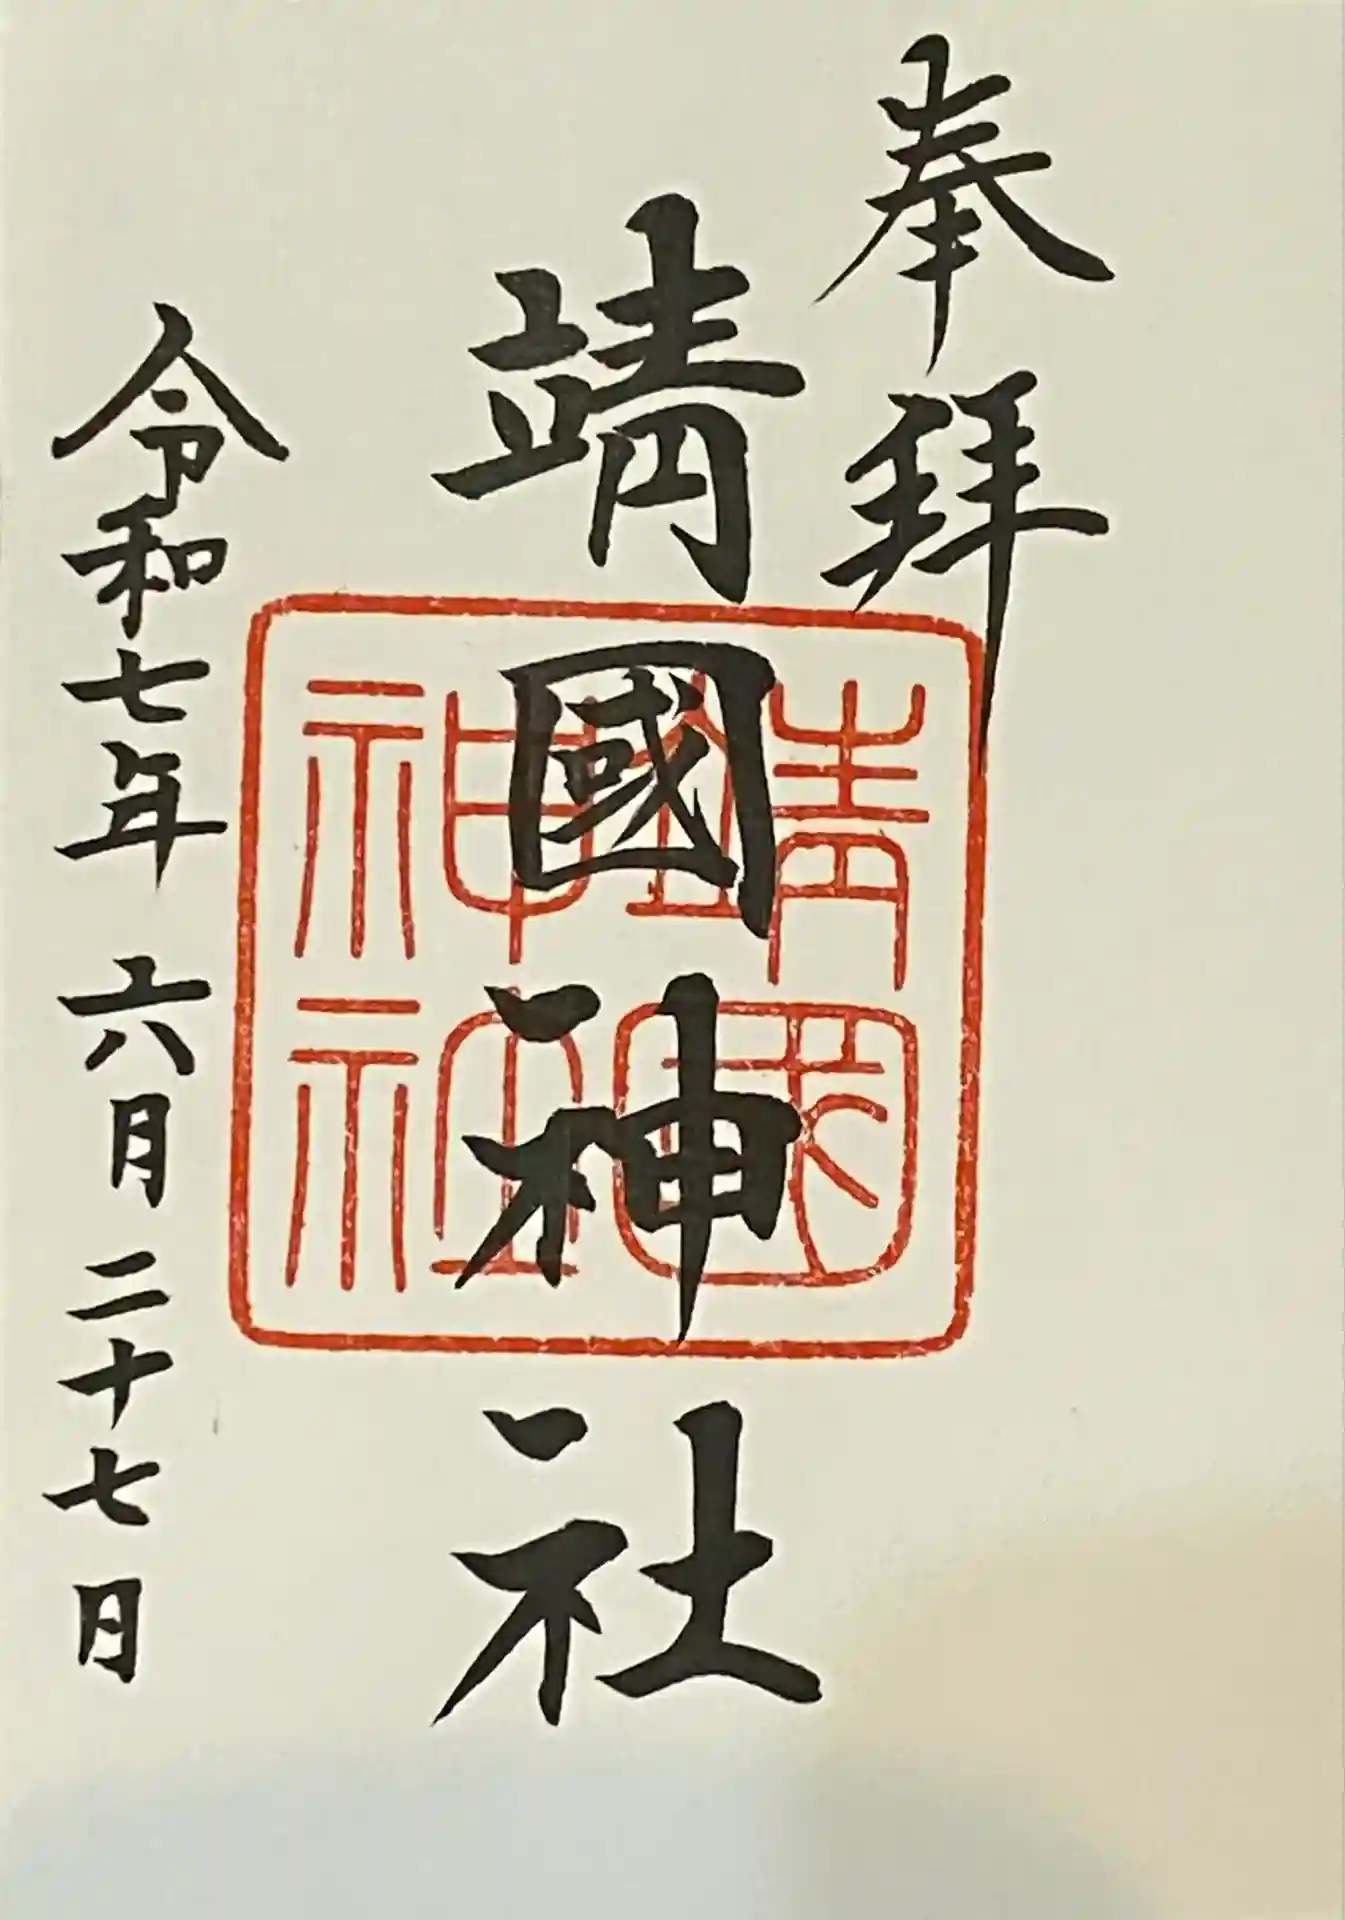 奉拜
靖國神社
靖國神社
令和七年六月二十七日